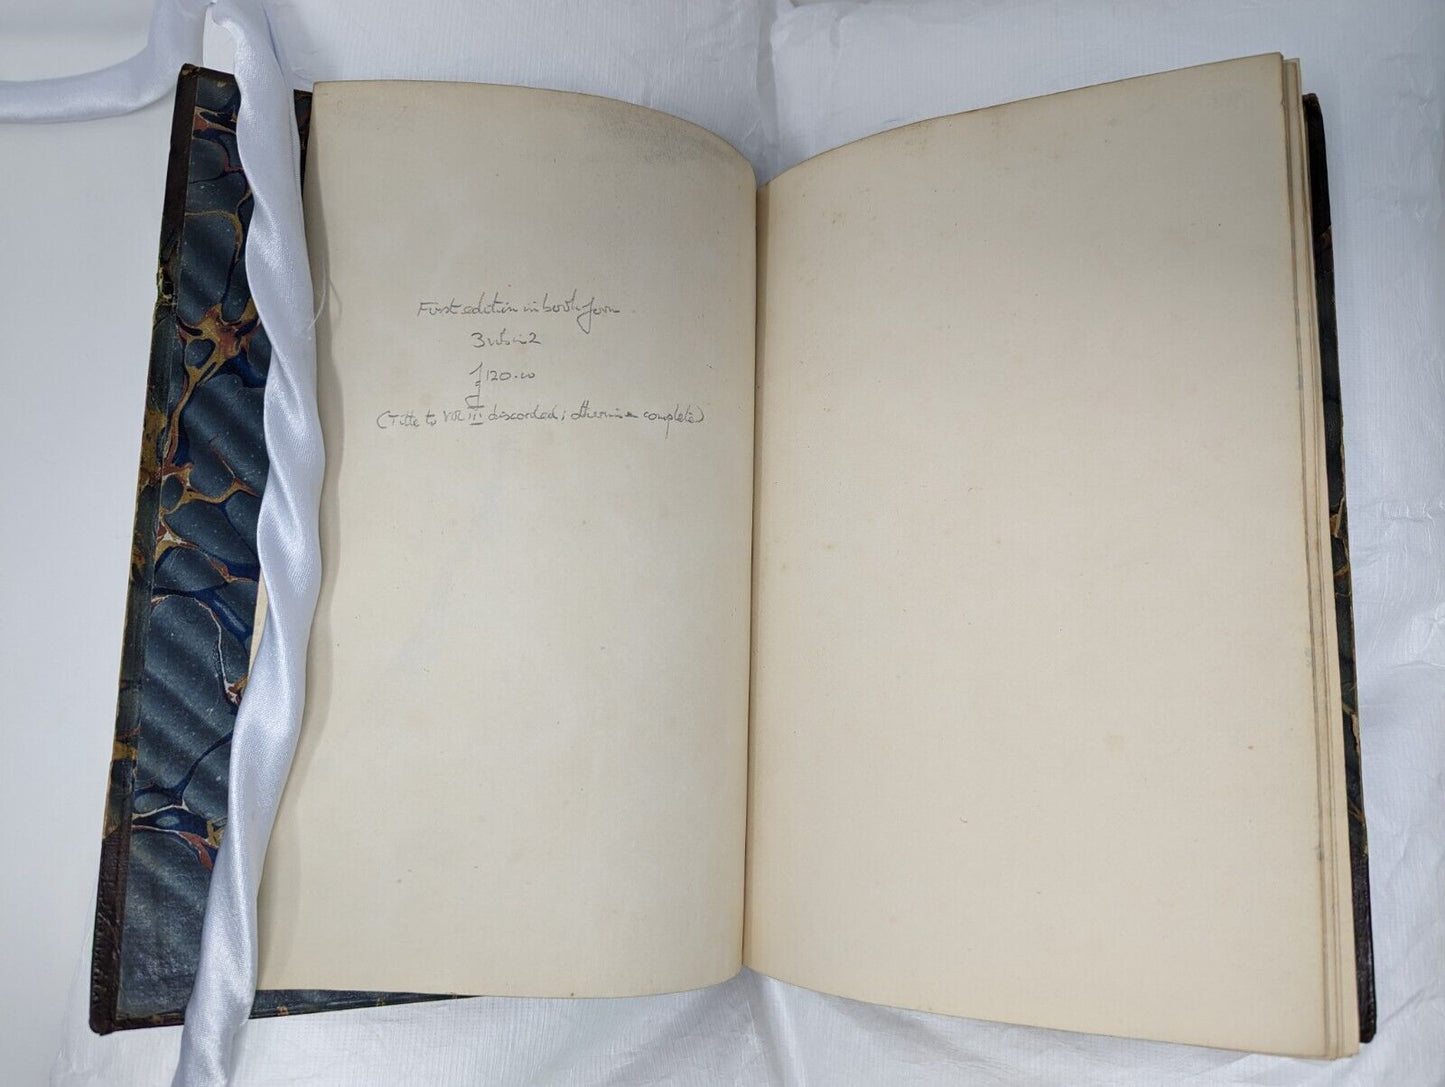 First edition in book form
3 vols in 2
£120.00
(Title to vol III discarded; otherwise complete)